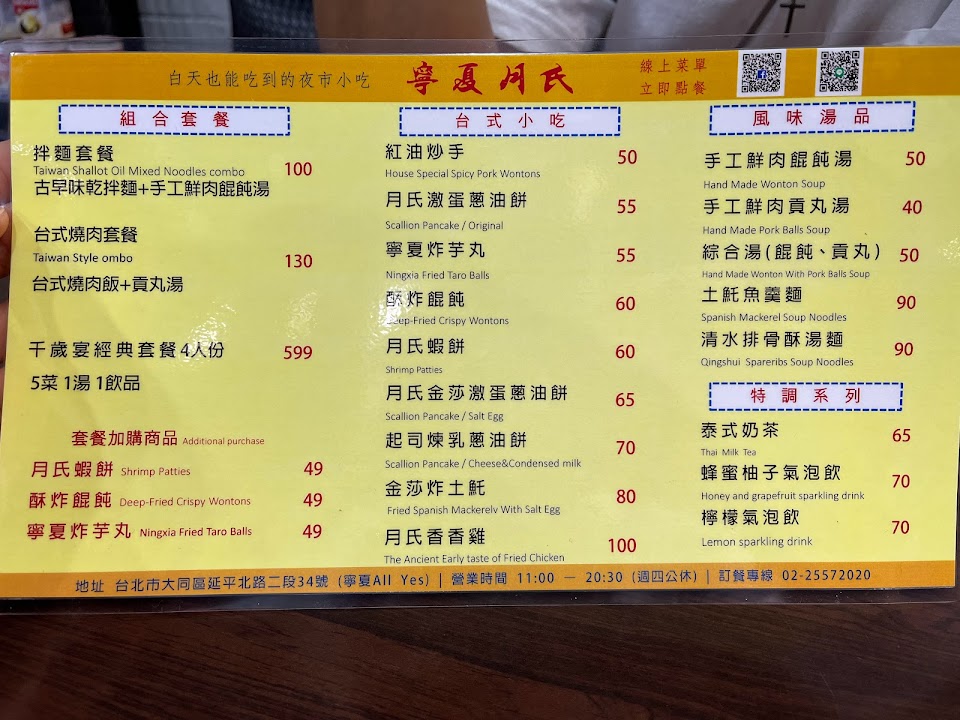 白天也能吃到的夜市小吃
寧夏月氏
線上菜單
立即點餐
組合套餐
拌麵套餐
Taiwan Shallot Oil Mixed Noodles combo
100
古早味乾拌麵+手工鮮肉餛飩湯
台式燒肉套餐
Taiwan Style ombo
130
台式燒肉飯+貢丸湯
千歲宴經典套餐4人份 599
5菜1湯1飲品
套餐加購商品 Additional purchase
月氏蝦餅 Shrimp Patties 49
酥炸餛飩 Deep-Fried Crispy Wontons 49
寧夏炸芋丸 Ningxia Fried Taro Balls 49
台式小吃
紅油炒手 50
House Special Spicy Pork Wontons
月氏激蛋蔥油餅 55
Scallion Pancake / Original
寧夏炸芋丸 55
Ningxia Fried Taro Balls
酥炸餛飩 60
Deep-Fried Crispy Wontons
月氏蝦餅 60
Shrimp Patties
月氏金莎激蛋蔥油餅 65
Scallion Pancake / Salt Egg
起司煉乳蔥油餅 70
Scallion Pancake / Cheese&Condensed milk
金莎炸土魠 80
Fried Spanish Mackerelv With Salt Egg
月氏香香雞 100
The Ancient Early taste of Fried Chicken
風味湯品
手工鮮肉餛飩湯 50
Hand Made Wonton Soup
手工鮮肉貢丸湯 40
Hand Made Pork Balls Soup
綜合湯(餛飩、貢丸) 50
Hand Made Wonton With Pork Balls Soup
土魠魚羹麵 90
Spanish Mackerel Soup Noodles
清水排骨酥湯麵 90
Qingshui Spareribs Soup Noodles
特調系列
泰式奶茶 65
Thai Milk Tea
蜂蜜柚子氣泡飲 70
Honey and grapefruit sparkling drink
檸檬氣泡飲 70
Lemon sparkling drink
地址 台北市大同區延平北路二段34號 (寧夏All Yes) | 營業時間 11:00 — 20:30 (週四公休) | 訂餐專線 02-25572020